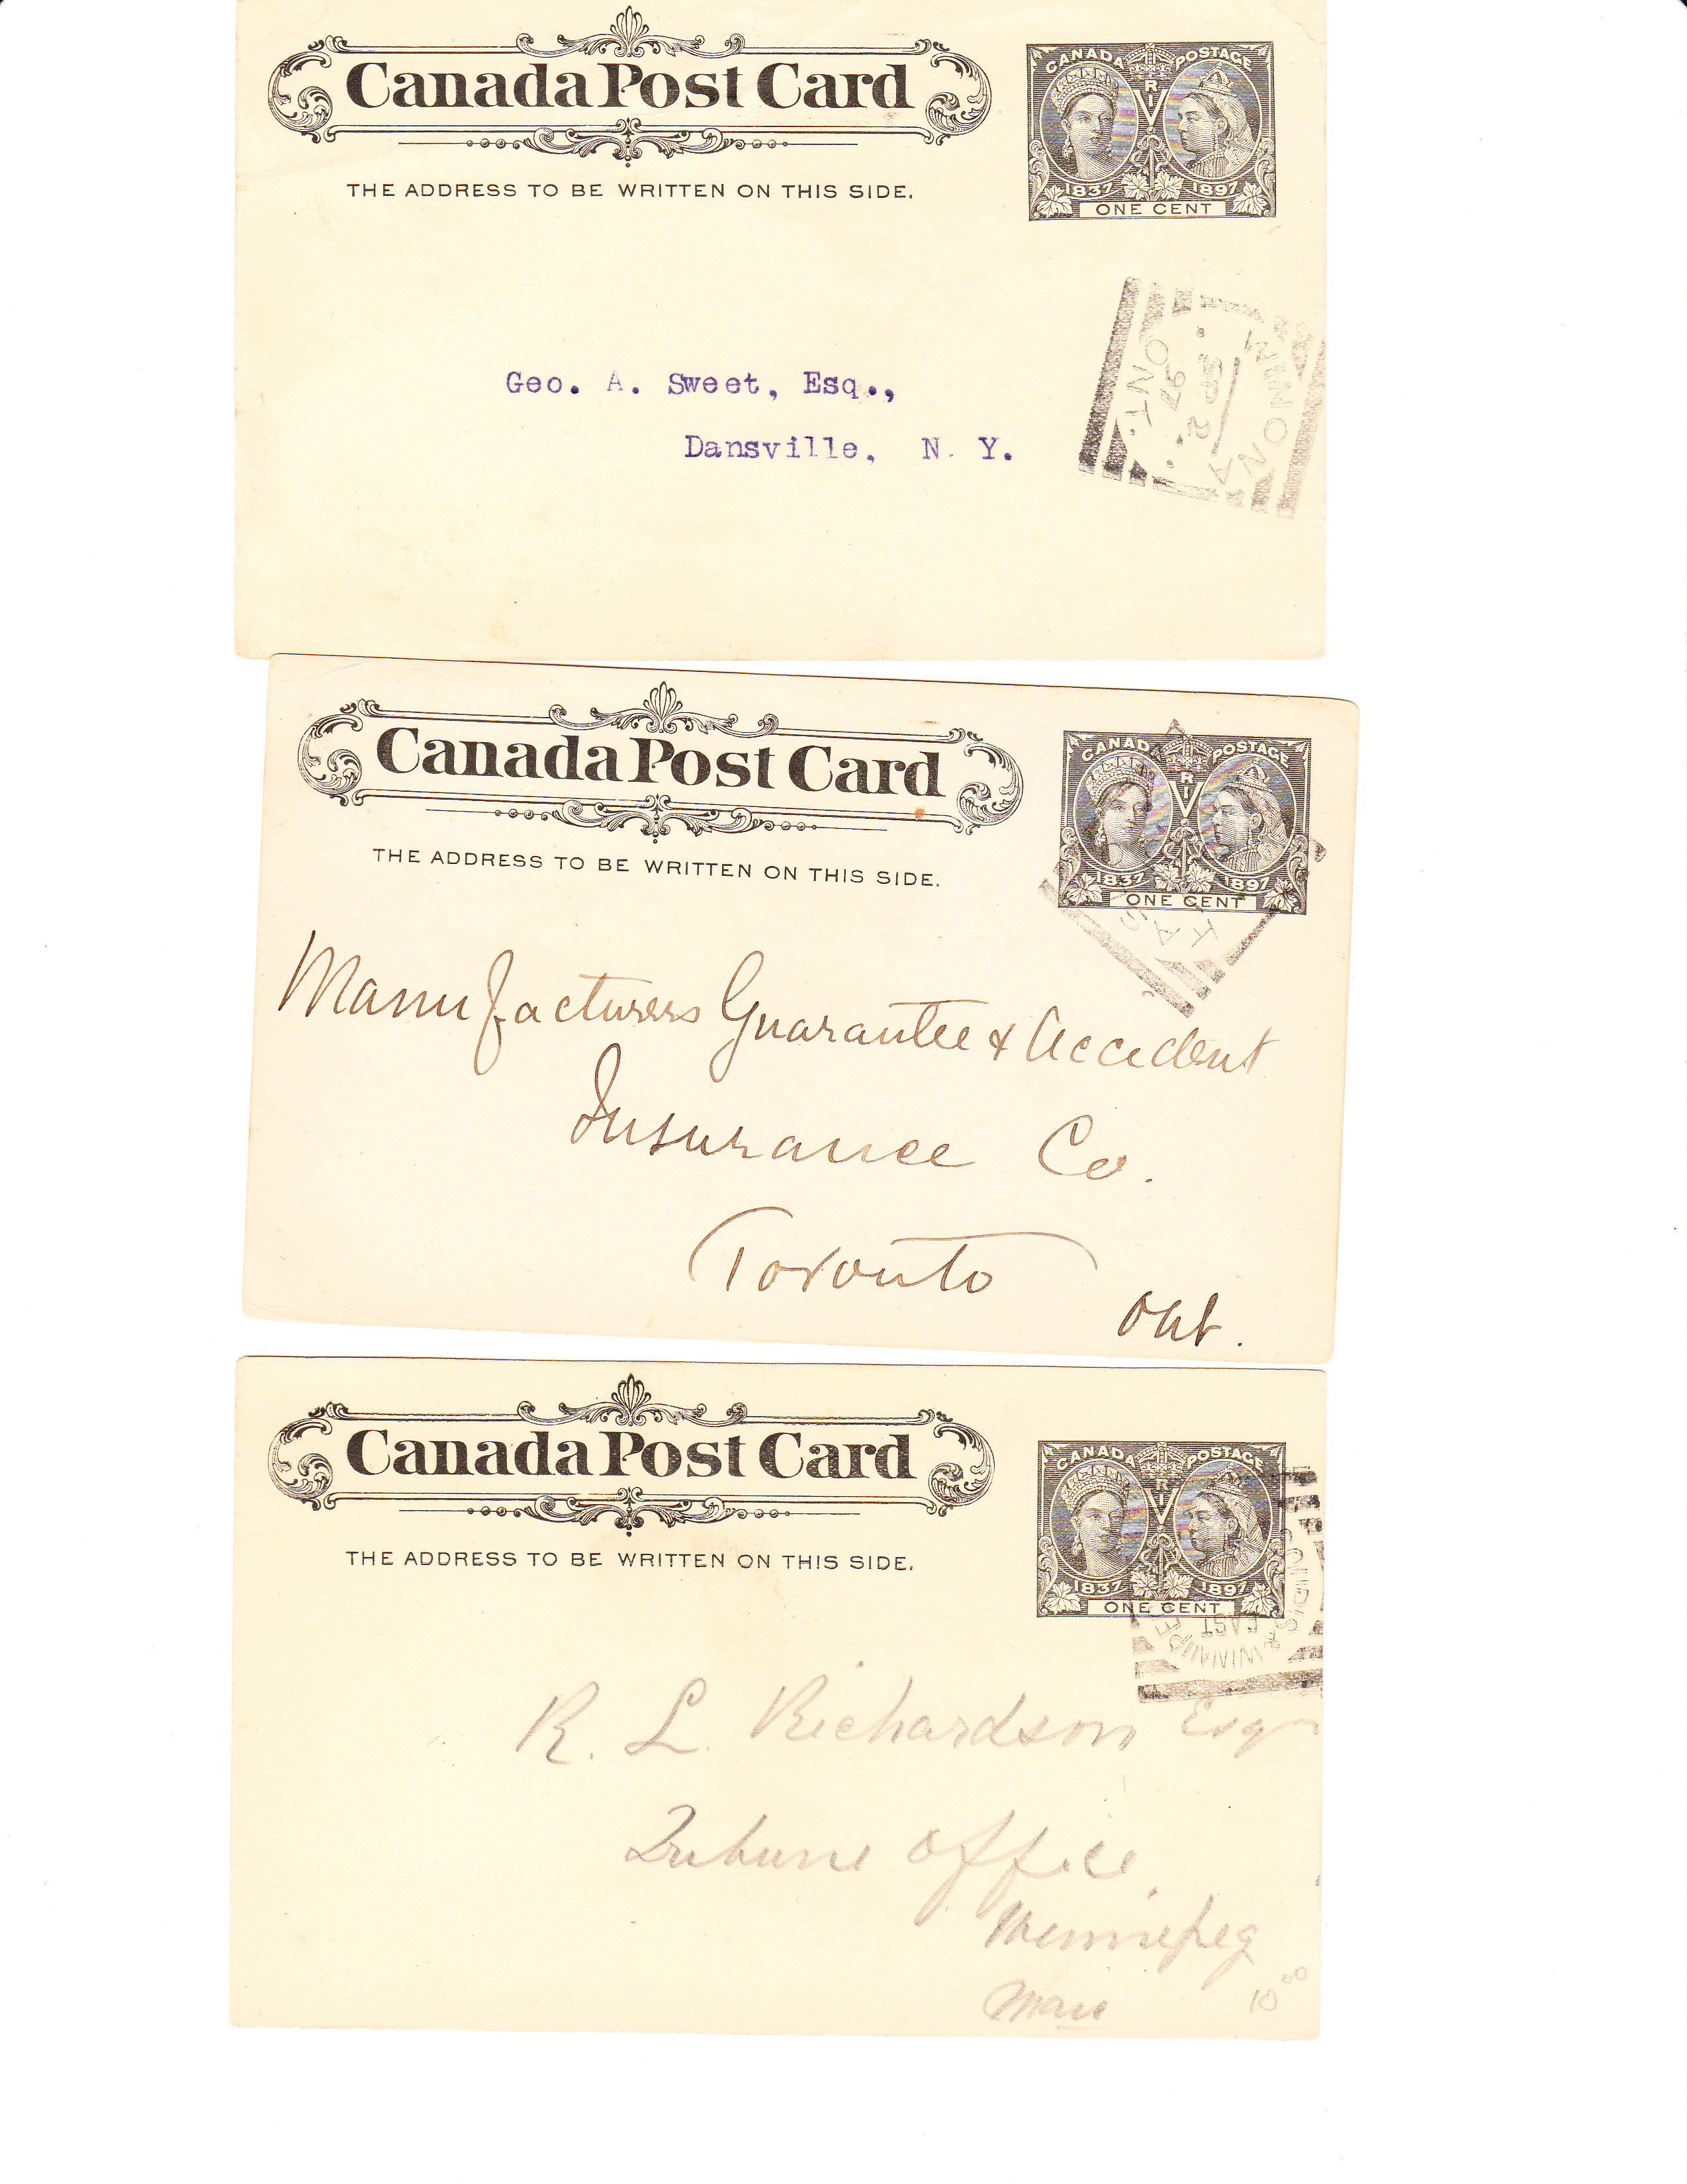 Canada Post Card
CANADA POSTAGE
V R I
1837 1897
ONE CENT
THE ADDRESS TO BE WRITTEN ON THIS SIDE.
WINONA
SP 2
97
ONT.
Geo. A. Sweet, Esq.,
Dansville, N. Y.
Canada Post Card
CANADA POSTAGE
V R I
1837 1897
ONE CENT
THE ADDRESS TO BE WRITTEN ON THIS SIDE.
Manufacturers Guarantee & Accident
Insurance Co.
Toronto
Ont.
Canada Post Card
CANADA POSTAGE
V R I
1837 1897
ONE CENT
THE ADDRESS TO BE WRITTEN ON THIS SIDE.
EAST
R. L. Richardson Esq
Tribune Office
Winnipeg
Man
10 00